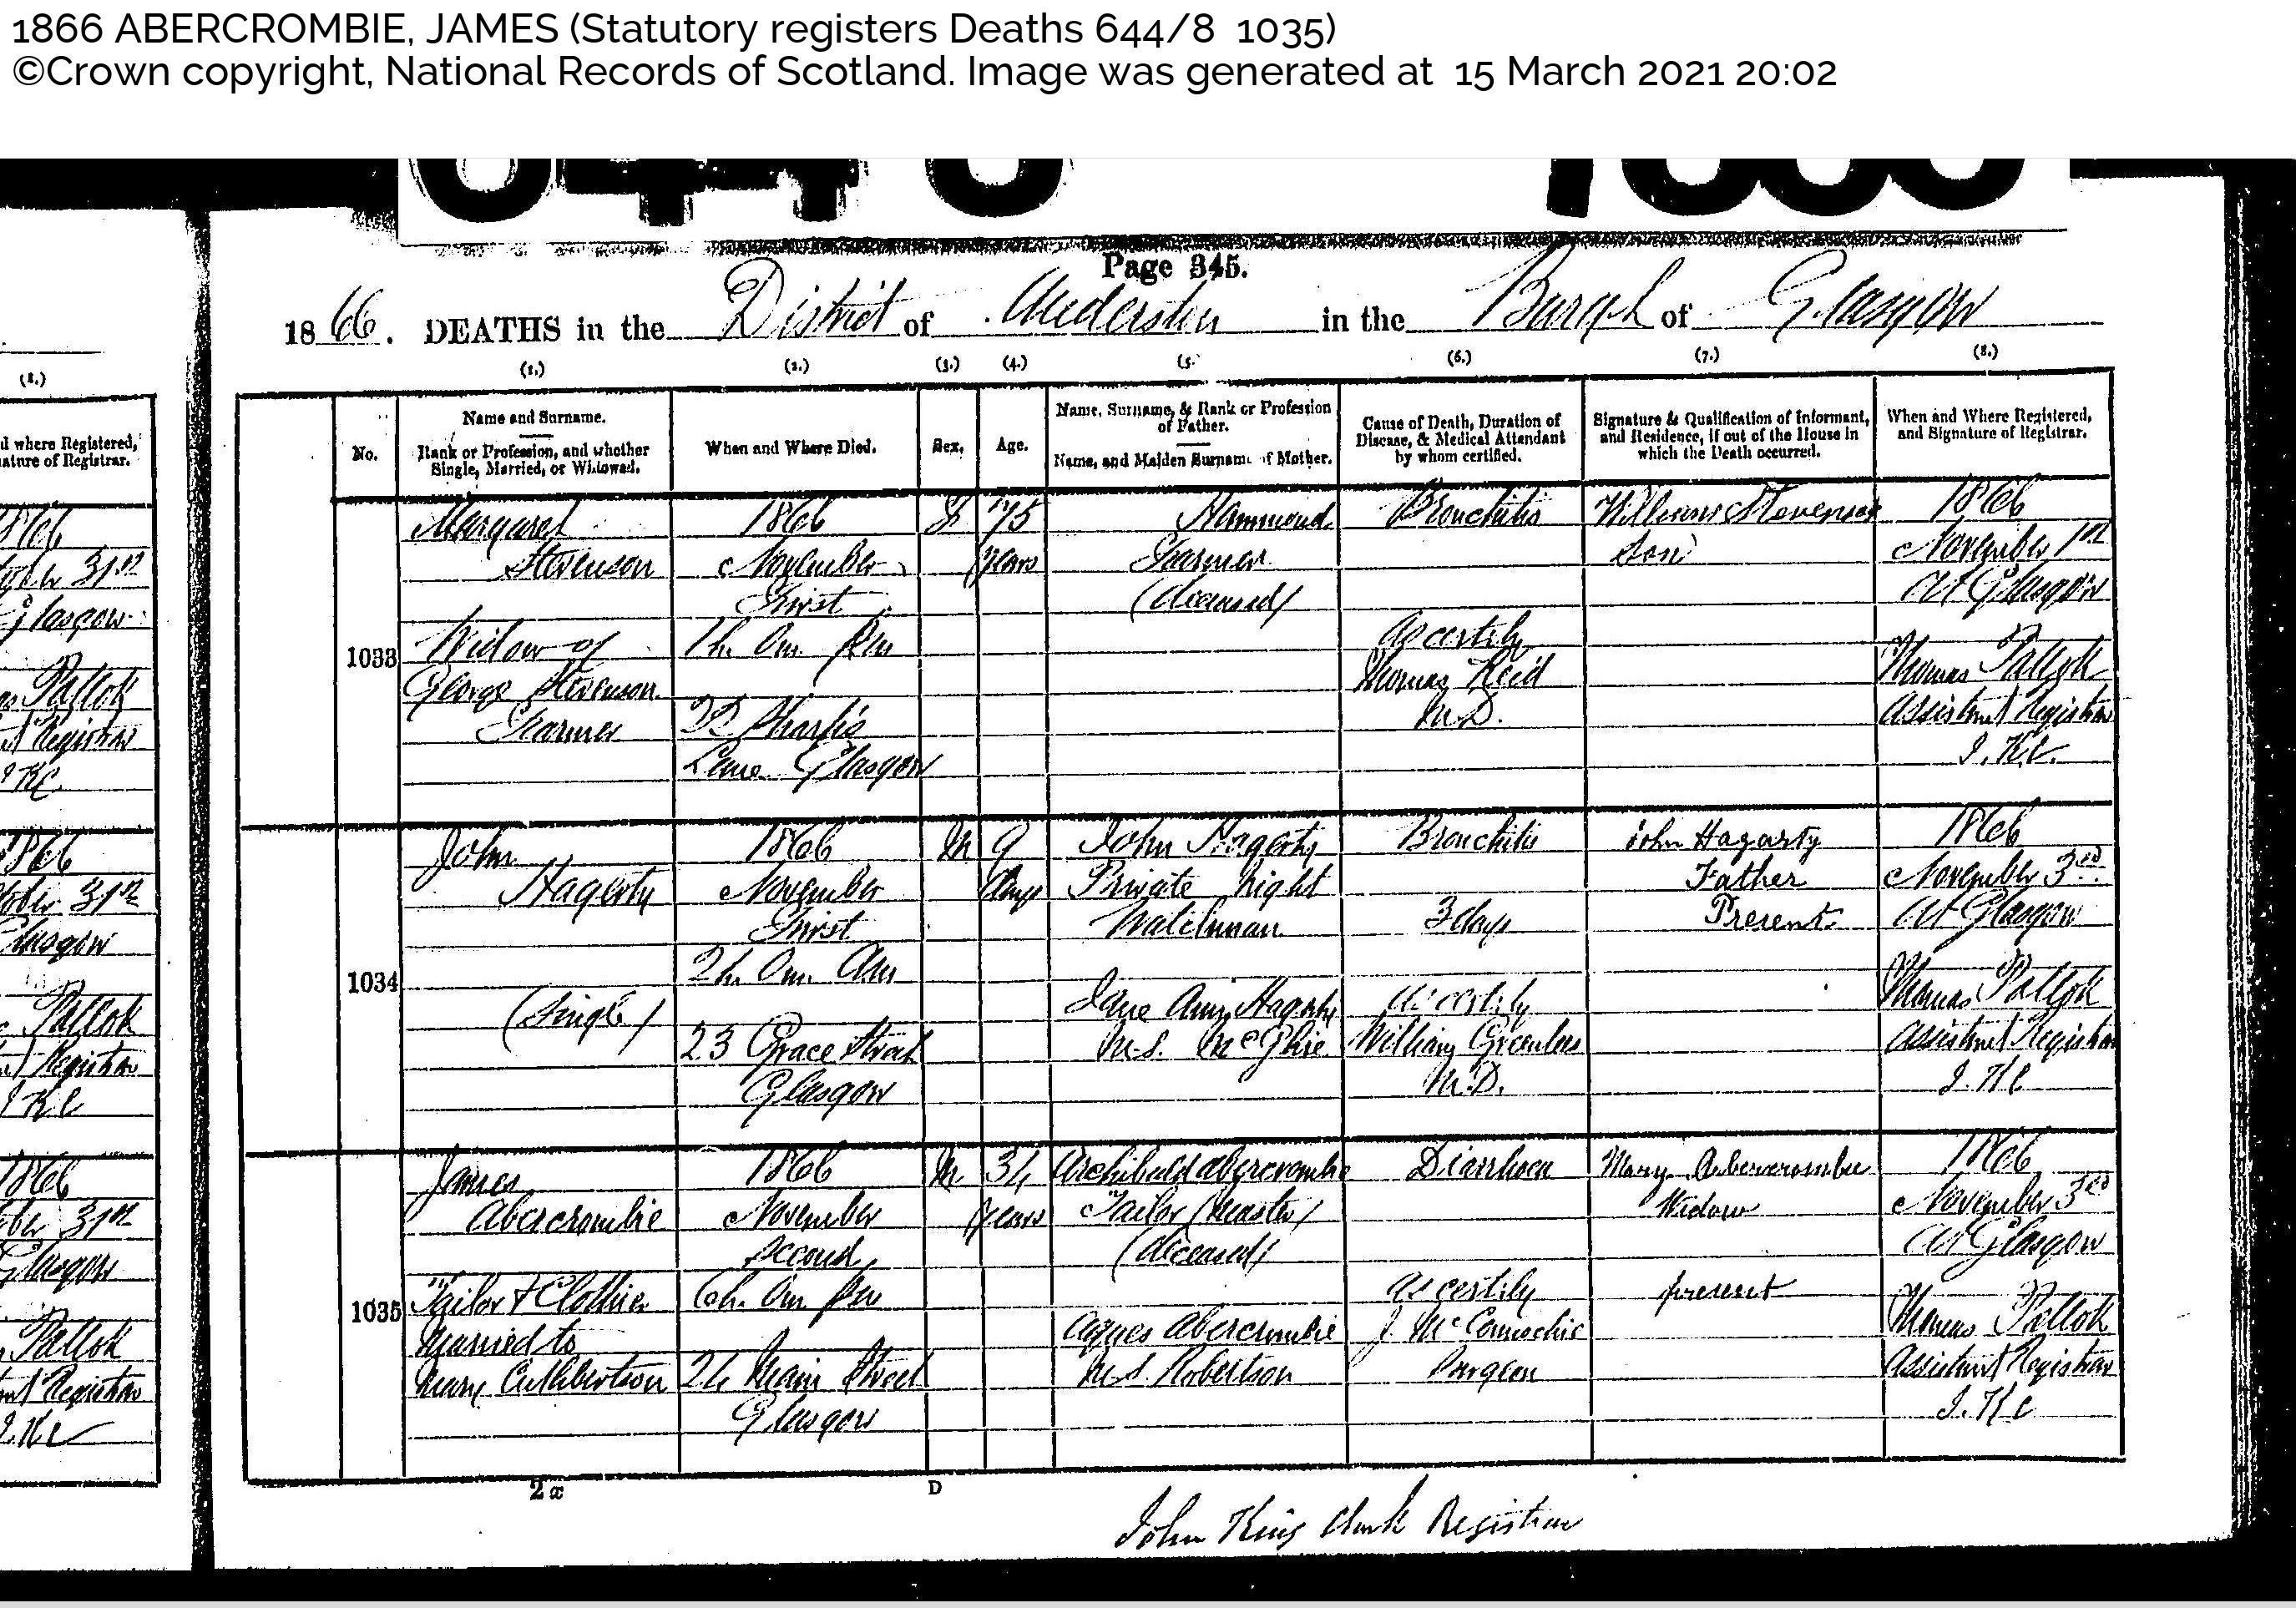 1866 ABERCROMBIE, JAMES (Statutory registers Deaths 644/8 1035)
©Crown copyright, National Records of Scotland. Image was generated at 15 March 2021 20:02
Page 345.
1866. DEATHS in the District of Anderston in the Burgh of Glasgow
(1.) (2.) (3.) (4.) (5. (6.) (7.) (8.)
No.
Name and Surname.
Rank or Profession, and whether
Single, Married, or Widowed.
When and Where Died.
Sex.
Age.
Name, Surname, & Rank or Profession
of Father.
Name, and Maiden Surname of Mother.
Cause of Death, Duration of
Disease, & Medical Attendant
by whom certified.
Signature & Qualification of Informant,
and Residence, if out of the House in
which the Death occurred.
When and Where Registered,
and Signature of Registrar.
1033
Margaret
Stevenson
Widow of
George Stevenson
Farmer
1866
November
First
1h. 0m. PM
Lane Glasgow
F
75
years
Hammond
Farmer
(deceased)
Bronchitis
As cert. by
Thomas Reid
M.D.
William Stevenson
Son
1866
November 1st
At Glasgow
Thomas Pallok
Assistant Registrar
J.K.C.
1034
John
Hagerty
(Single)
1866
November
First
2h. 0m. AM
23 Grace Street
Glasgow
M
9
days
John Hagerty
Private Night
Watchman
Jane Ann Hagerty
M.S. McGhie
Bronchitis
3 days
As cert. by
William Greenlees
M.D.
John Hagarty
Father
Present
1866
November 3rd
At Glasgow
Thomas Pallok
Assistant Registrar
J.K.C
1035
James
Abercrombie
Tailor & Clothier
Married to
Mary Cuthbertson
1866
November
Second
6h. 0m PM
24 Main Street
Glasgow
M
34
years
Archibald Abercrombie
Tailor (Master)
(deceased)
Agnes Abercrombie
M.S. Robertson
Diarrhoea
As cert. by
Surgeon
Mary Abercrombie
Widow
present
1866
November 3rd
At Glasgow
Thomas Pallok
Assistant Registrar
J.K.C
2 x D
John King Clark Registrar